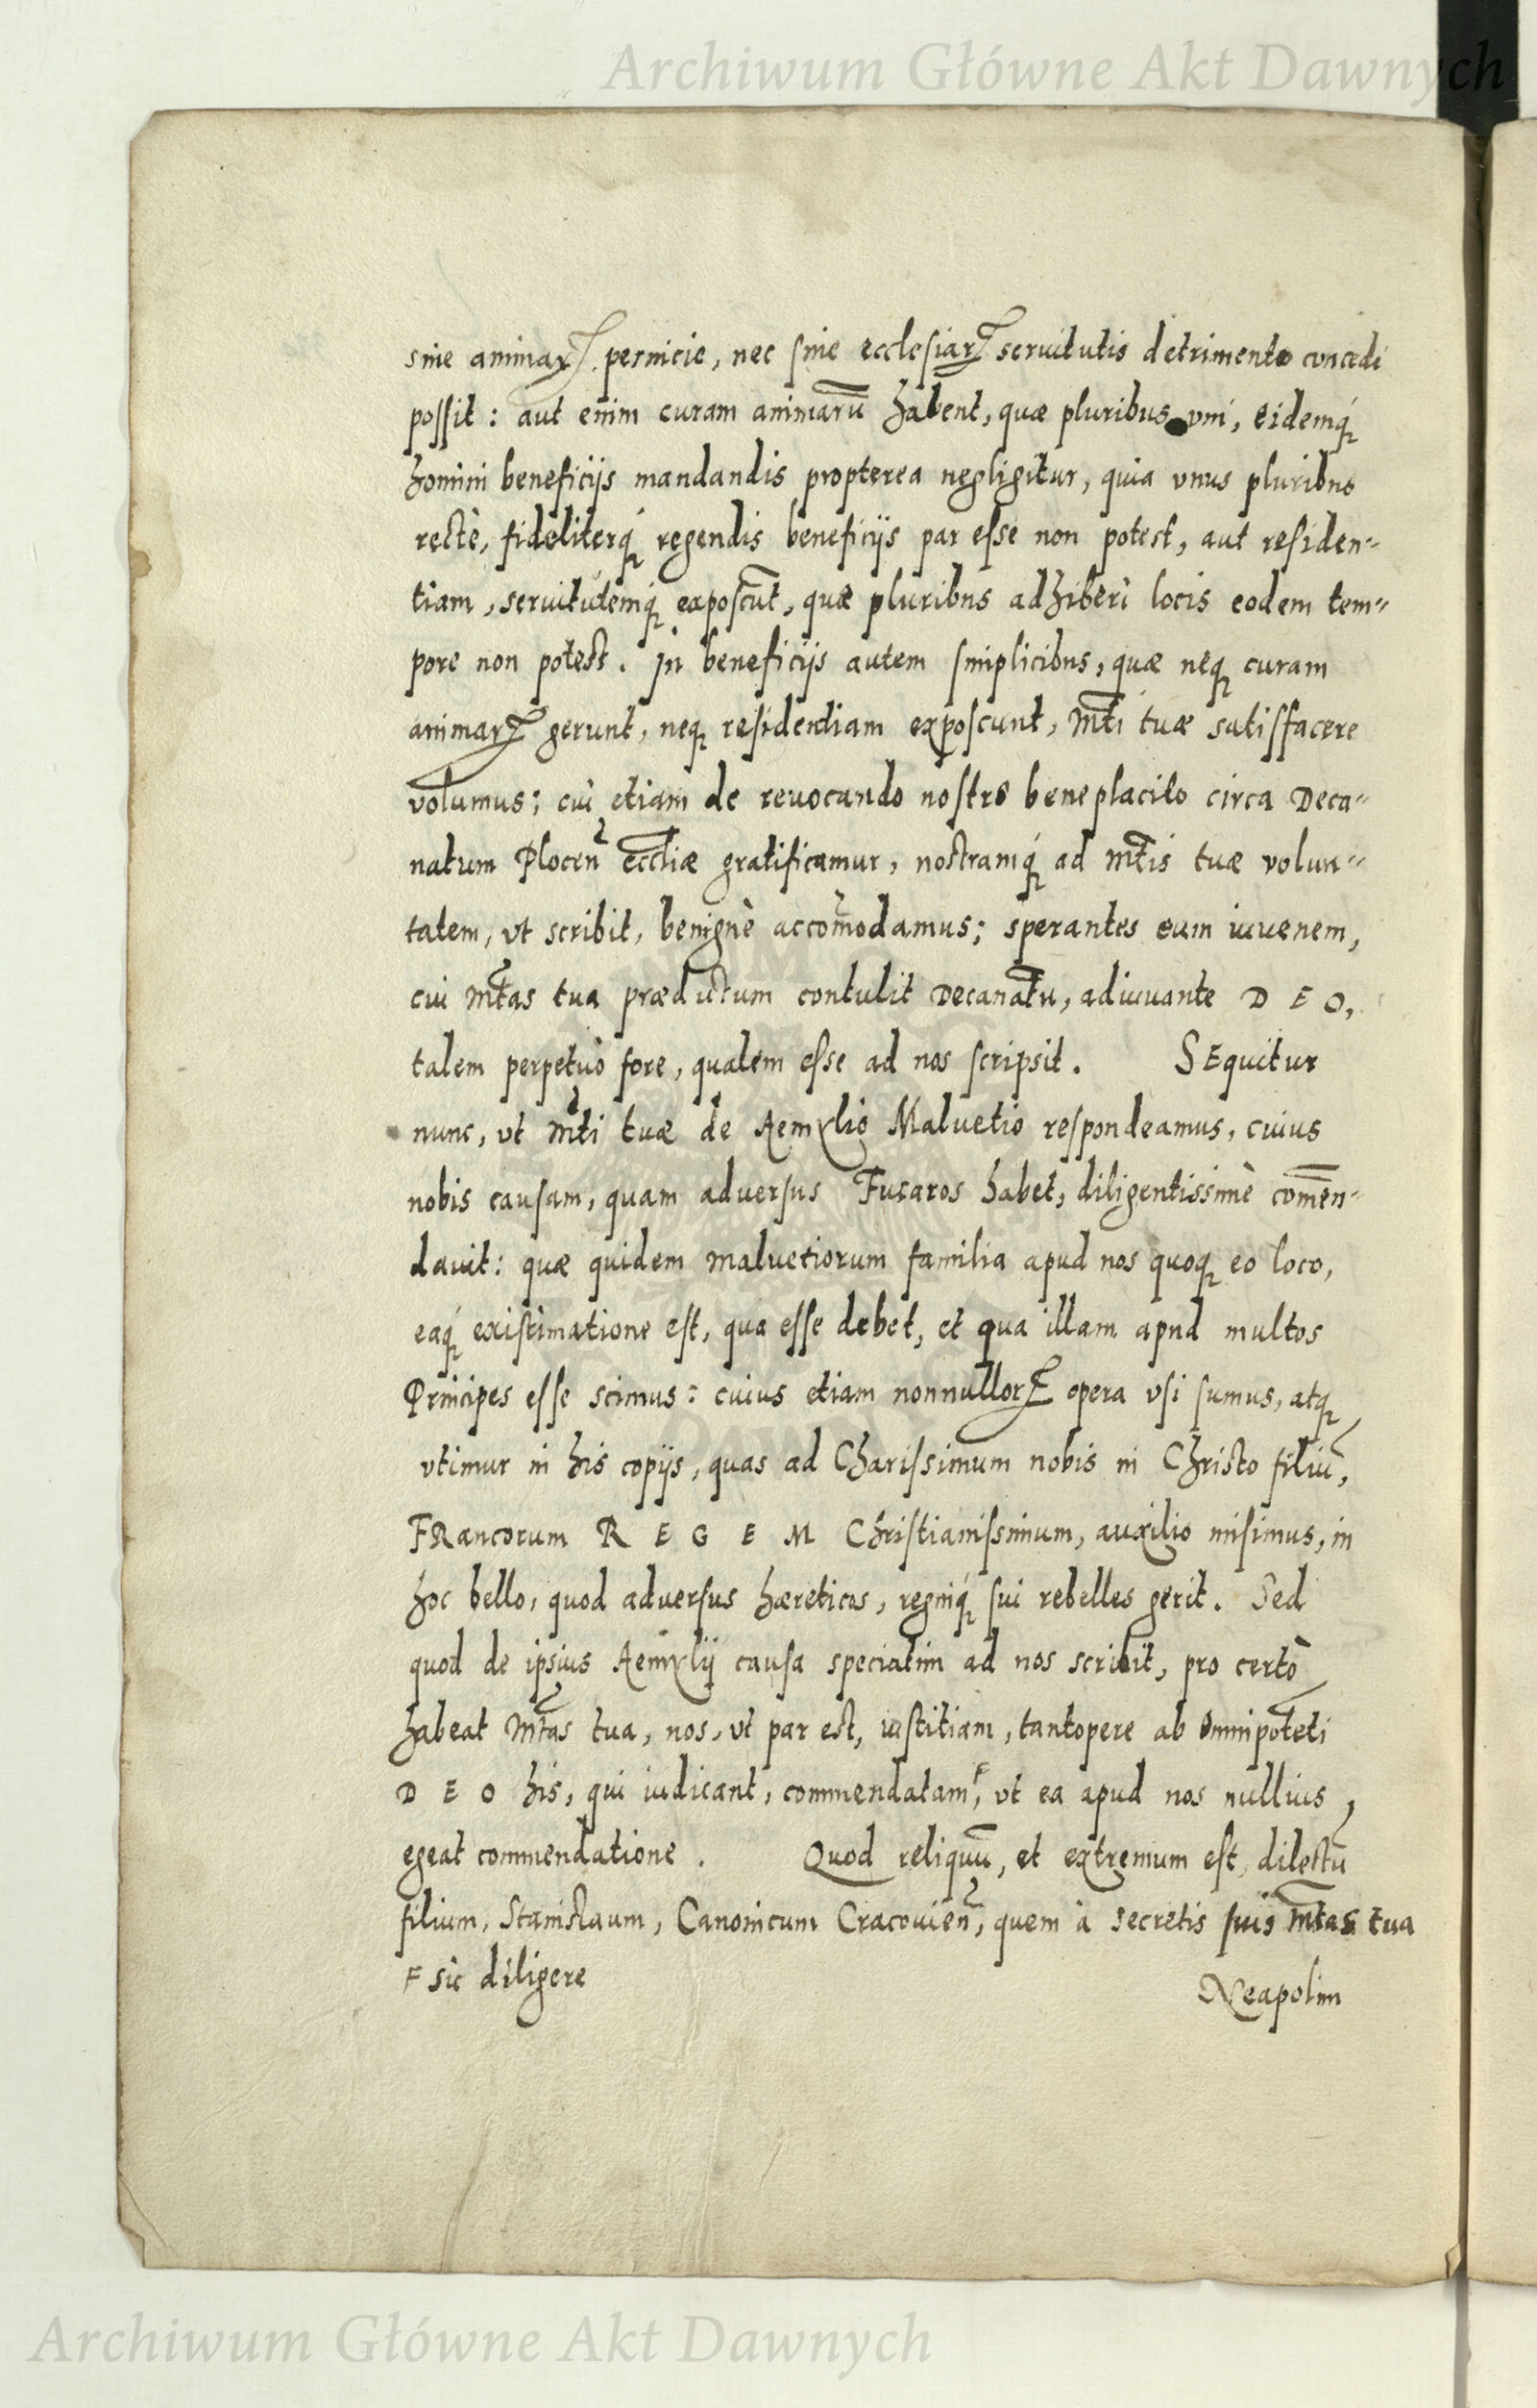 Archiwum Główne Akt Dawnych
sine animarꝝ pernicie, nec sine ecclesiarꝝ seruitutis detrimento concedi
possit: aut enim curam animarū habent, quæ pluribus vni, eidemq́ꝫ
homini beneficijs mandandis propterea negligitur, quia vnus pluribus
rectè, fideliterq́ꝫ regendis beneficijs par esse non potest, aut residen-
tiam, seruitutemq́ꝫ exposcūt, quæ pluribus adhiberi locis eodem tem-
pore non potest. In beneficijs autem simplicibus, quæ neqꝫ curam
animarꝝ gerunt, neqꝫ residentiam exposcunt, M̃ti tuæ satisfacere
volumus; cui etiam de reuocando nostro beneplacito circa Deca-
natum Plocen̄ eccl̄iæ gratificamur, nostramq́ꝫ ad M̃tis tuæ volun-
tatem, vt scribit, benignè accom̄odamus; sperantes eum iuuenem,
cui M̃tas tua prædictum contulit Decanatū, adiuuante D E O,
talem perpetuò fore, qualem esse ad nos scripsit. SEquitur
nunc, vt M̃ti tuæ de Aemylio Maluetio respondeamus, cuius
nobis causam, quam aduersus Fucaros habet, diligentissimè com̄en-
dauit: quæ quidem Maluetiorum familia apud nos quoqꝫ eo loco,
eaq́ꝫ existimatione est, qua esse debet, et qua illam apud multos
Principes esse scimus: cuius etiam nonnullorꝝ opera vsi sumus, atqꝫ
vtimur in his copijs, quas ad Charissimum nobis in Christo filiū,
FRancorum R E G E M Christianissimum, auxilio misimus, in
hoc bello, quod aduersus hæreticos, regniq́ꝫ sui rebelles gerit. Sed
quod de ipsius Aemylij causa speciatim ad nos scribit, pro certo
habeat M̃tas tua, nos, vt par est, iustitiam, tantopere ab Omnipotēti
D E O his, qui iudicant, commendatam, ͰF vt ea apud nos nullius
egeat commendatione. Quod reliquū, et extremum est, dilectū
filium, Stanislaum, Canonicum Cracouien̄, quem à secretis suis M̃tas tua
F sic diligere
Neapolim
Archiwum Główne Akt Dawnych